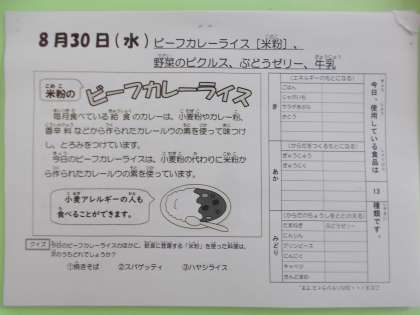 8月30日(水) ビーフカレーライス[米粉]、
野菜のピクルス、ぶどうゼリー、牛乳
米粉の ビーフカレーライス
毎月食べている給食のカレーは、小麦粉やカレー粉、
香辛料などから作られたカレールウの素を使って味つけ
し、とろみをつけています。
今日のビーフカレーライスは、小麦粉の代わりに米粉か
ら作られたカレールウの素を使っています。
小麦アレルギーの人も
食べることができます。
クイズ 今日のビーフカレーのほかに、給食に登場する「米粉」を使った料理は、
次のうちどれでしょうか?
①焼きそば ②スパゲッティ ③ハヤシライス
今日、使用している食品は
13
種類です。
(エネルギーのもとになる)
き
ごはん
じゃがいも
サラダあぶら
さとう
(からだをつくるもとになる)
あか
ぎゅうにゅう
ぎゅうにく
(からだのちょうしをととのえる)
みどり
たまねぎ
ぶどうゼリー
にんじん
グリンピース
にんにく
キャベツ